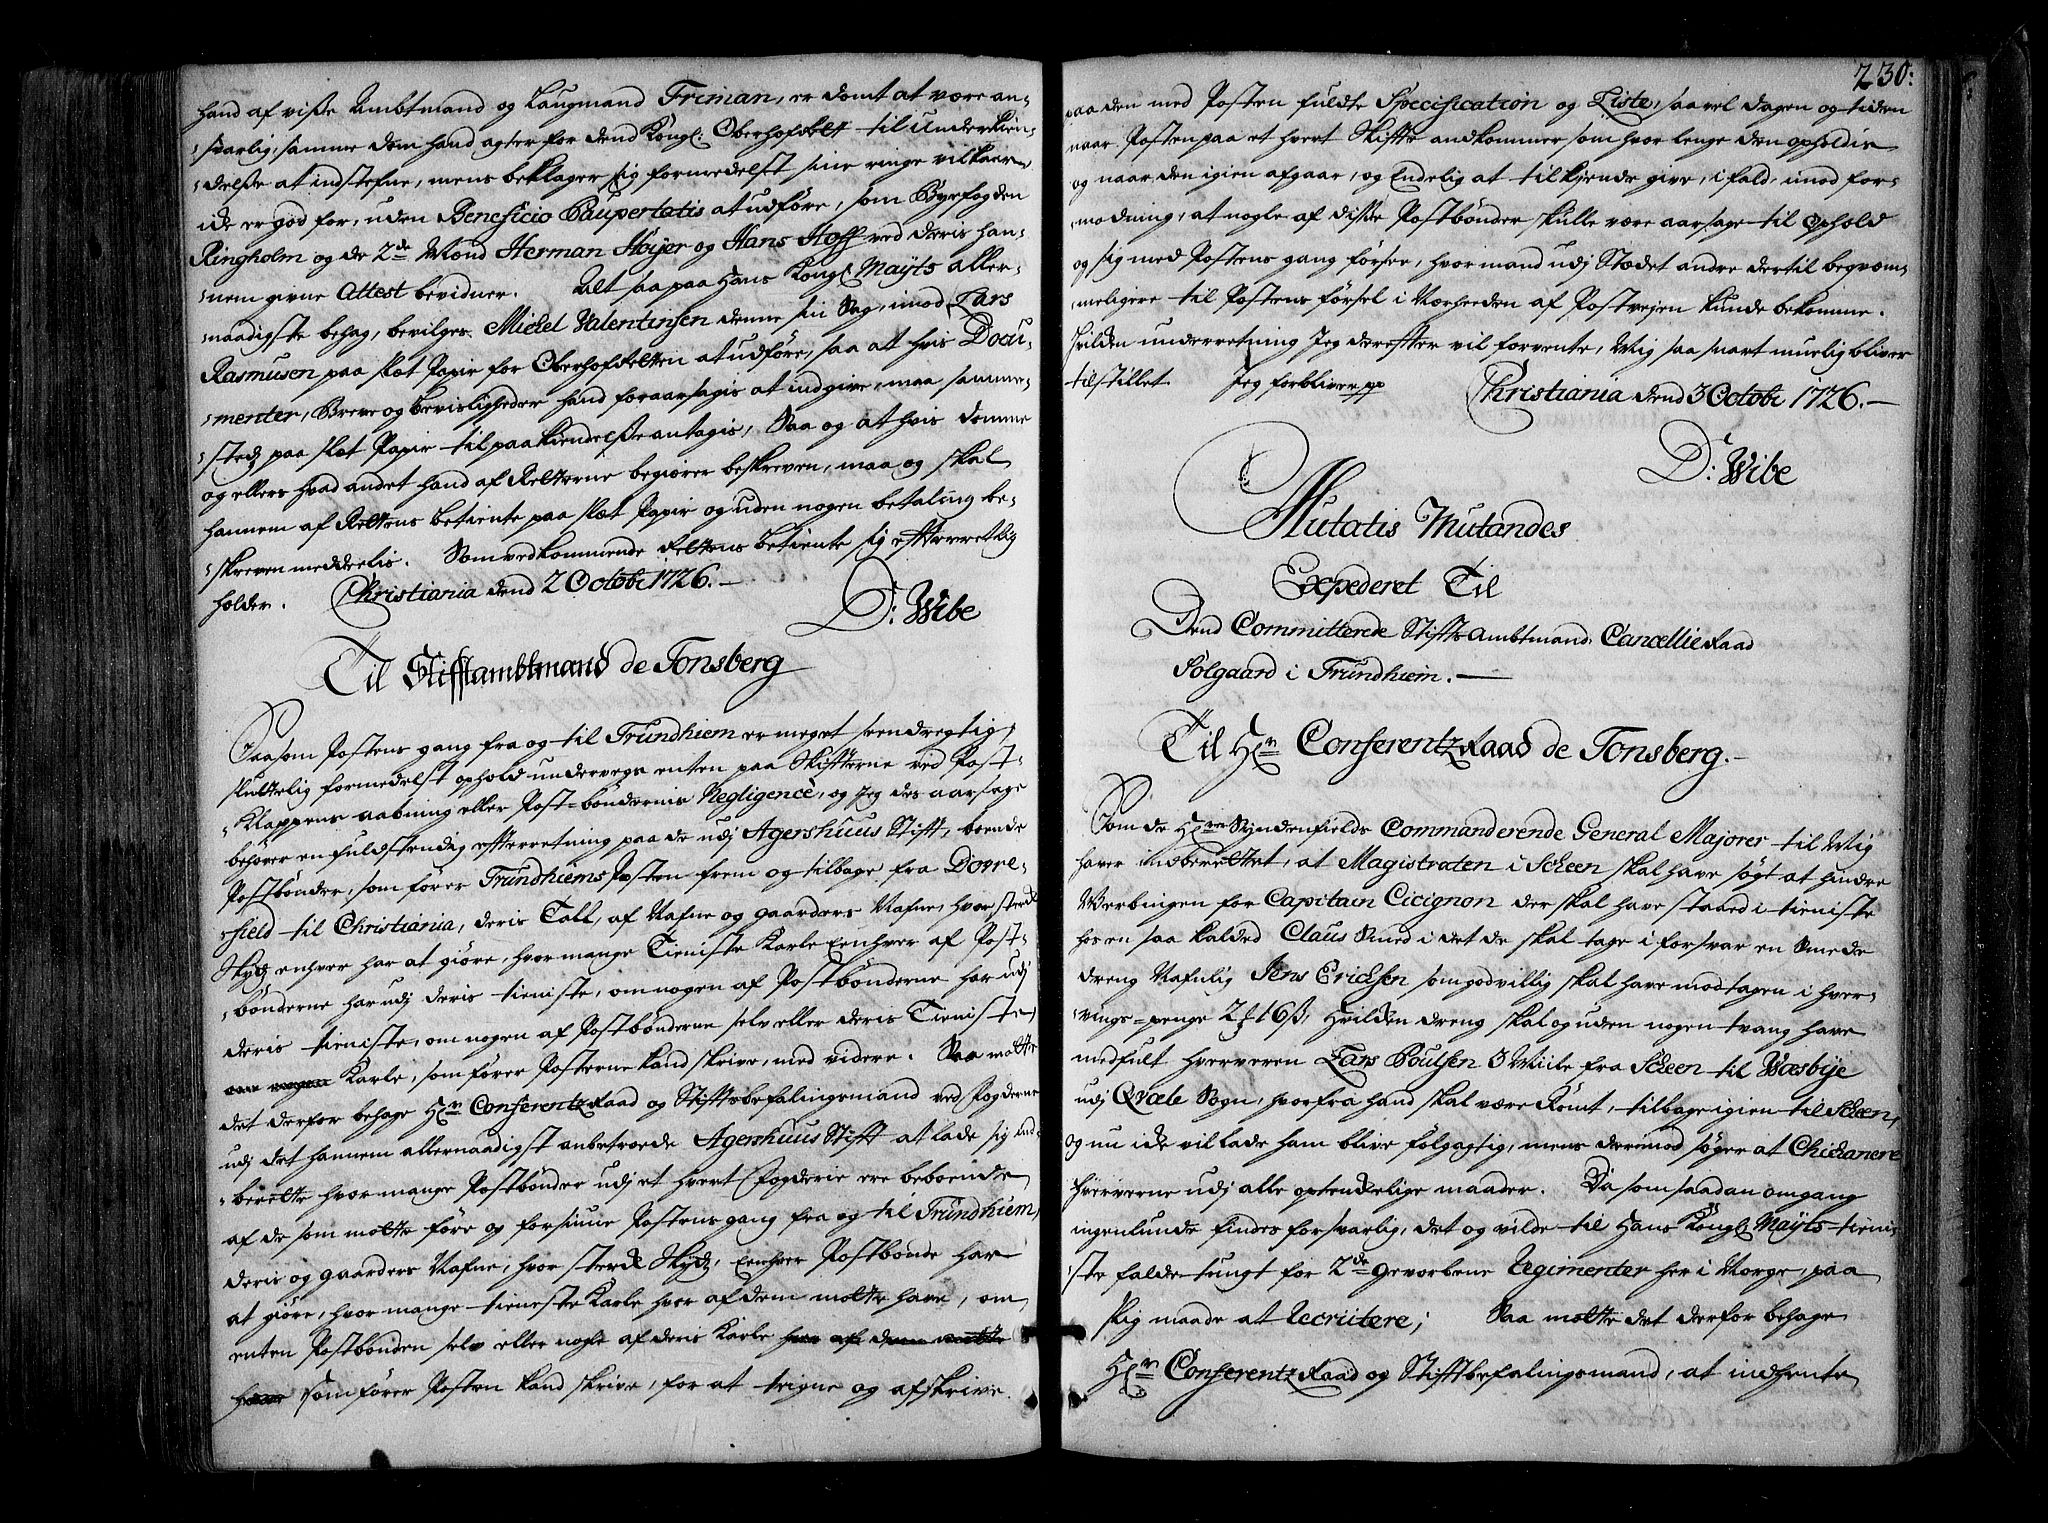 hand af visse Ambtmand og Laugmand Friman, er dømt at være an-
svarlig, samme dom hand agter for dend Kongl: Oberhofrett til Underkien-
delse at indstefne, mens beklager sig formedelst sine ringe vilkaar
icke er god for, uden Beneficio Paupertatis at udføre, som Byefogden
Ringholm og de 2de Mænd Herman Høyer og Hans Hoff ved deris han-
nem givne Attest bevidner. Alt saa paa Hans Kongl Mayts aller-
naadigste behag, bevilges Michel Valentinsen denne sin Sag, imod Lars
Rasmusen paa slæt Papir for Oberhofretten at udføre, saa at hvis Docu-
menter, Breve og bevisligheder hand foraarsagis at indgive, maa samme-
stedz paa slæt Papir til paakiendelse antagis, Saa og at hvis domme
og ellers hvad andet hand af Retterne begiører beskreven, maa og skal
hannem af Rettens betiente paa slæt Papir og uden nogen betaling be-
skreven meddeelis. Som vedkommende Rettens betiente sig efterretlig
holder. Christiania dend 2 Octobr 1726.
D: Wibe
Til Stifftambtmand de Tonsberg
Saasom Postens gang fra og til Trundhiem er meget seendregtig,
sluttelig formedelst ophold underveys enten paa Skiffterne ved Post-
Klappens aabning eller Post-bøndernis Negligence, og Jeg des aarsage
behøver en fuldstendig efterretning paa de udj Agershuus Stifft, boende
Postbønder, som fører Trundhiems Posten frem og tilbage fra Dovre-
field til Christiania, deris Tall, af Nafne og gaarders Nafne, hvor sterck
Skydz enhver har at giøre, hvor mange Tieniste Karle Eenhver af Post-
bønderne har udj deris tieniste, om nogen af Postbønderne har udj
deris tieniste, om nogen af Postbønderne selv eller deris Tieniste
om nogen Karle, som fører Posterne kand skrive, med videre. Saa motte
det derfor behage Hrn ConferentzRaad og Stifftsbefalingsmand ved Fogderne
udj det hannem allernaadigst anbetroede Agershuus Stifft at lade sig ind-
berette hvor mange Postbønder udj et hvert Fogderie ere beboende
af de som motte føre og forsiune Postens gang fra og til Trundhiem,
deris og gaarders Nafne, hvor sterck Skydz, Eenhver Postbonde har
at giøre, hvor mange tieneste Karle hver af dem motte have, om
enten Postbonden selv eller nogle af deris Karle hver af dem motte
have som fører Posten kand skrive, for at teigne og afskrive.
230:
paa den med Posten fuldte Specification og Liste, saavel dagen og tiden
naar Posten paa et hvert Skiffte andkommer som hvor lenge den opholdis
og naar den igien afgaar, og Endelig at tilkjende give, i fald, imod for-
modning, at nogle af disse Postbønder skulle være aarsage til Ophold
og sig med Postens gang forsee, hvor mand udj Stædet andre dertil beqvem-
meligere til Postens førsel i Nærheeden af Postvejen kunde bekomme.
hvilcken underretning Jeg derefter vil forvente, Mig saa snart muelig bliver
tilstillet. Jeg forbliver pp Christiania dend 3 Octobr 1726.
D: Wibe
Mutatis Mutandes
Expederet Til
Dend Committerede Stiffts Ambtmand, CancellieRaad
Solgaard i Trundhiem.
Til Hrn ConferentzRaad de Tonsberg.
Som de Hrer Syndenfields Commanderende General Majorer til Mig
haver indberettet, at Magistraten i Scheen skal have søgt at hindre
Werbingen for Capitain Cicignon der skal have staaed i tieniste
hos en saa kalded Claus Smed i det de skal tage i forsvar en Smede
dreng Nafnlig Jens Erichsen som godvillig skal have modtagen i hver-
vings-penge 2 ʒ 16 β, Hvilcken dreng skal og uden nogen tvang have
medfult Hververen Lars Poulsen 3 Miile fra Scheen til Wæsbye
udj Qvæle Sogn, hvorfra hand skal være Rømt, tilbage igien til Scheen,
og nu icke vil lade ham blive følgagtig, mens derimod søger at Chichanere
Hververne udj alle optenckelige maader. Da som saadan omgang
ingenlunde findes forsvarlig, det og vilde til Hans Kongl Mayts tieni-
ste falde tungt for 2de gevorbene Regimenter her i Norge, paa
slig maade at recruitere; Saa motte det derfor behage
Hrn ConferentzRaad og Stifftbefalingsmand, at indhente